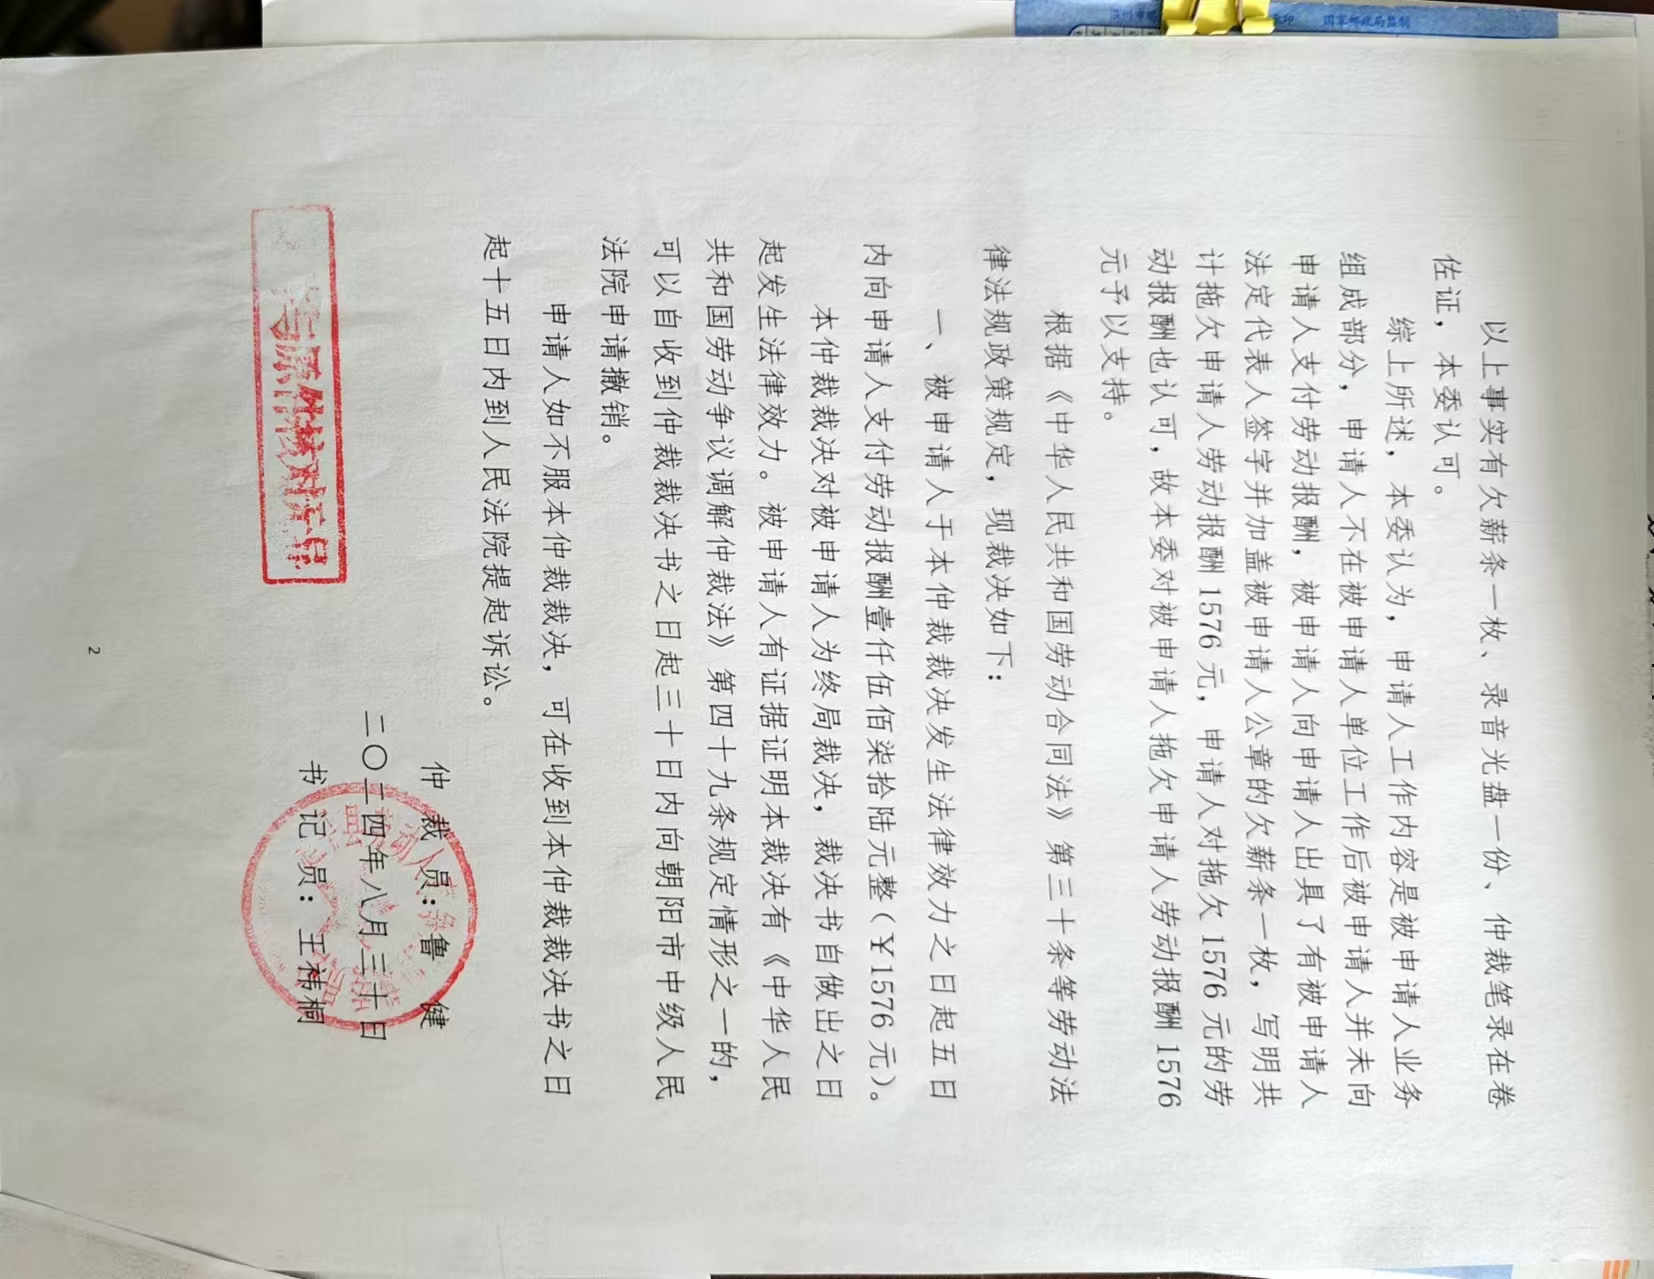 以上事实有欠薪条一枚、录音光盘一份、仲裁笔录在卷
佐证，本委认可。
综上所述，本委认为，申请人工作内容是被申请人业务
组成部分，申请人不在被申请人单位工作后被申请人并未向
申请人支付劳动报酬，被申请人向申请人出具了有被申请人
法定代表人签字并加盖被申请人公章的欠薪条一枚，写明共
计拖欠申请人劳动报酬1576元，申请人对拖欠1576元的劳
动报酬也认可，故本委对被申请人拖欠申请人劳动报酬1576
元予以支持。
根据《中华人民共和国劳动合同法》第三十条等劳动法
律法规政策规定，现裁决如下：
一、被申请人于本仲裁裁决发生法律效力之日起五日
内向申请人支付劳动报酬壹仟伍佰柒拾陆元整（￥1576元）。
本仲裁裁决对被申请人为终局裁决，裁决书自做出之日
起发生法律效力。被申请人有证据证明本裁决有《中华人民
共和国劳动争议调解仲裁法》第四十九条规定情形之一的，
可以自收到仲裁裁决书之日起三十日内向朝阳市中级人民
法院申请撤销。
申请人如不服本仲裁裁决，可在收到本仲裁裁决书之日
起十五日内到人民法院提起诉讼。
仲裁员：鲁健
二〇二四年八月三十日
书记员：王祎桐
与原件核对无异
2
国家邮政局监制